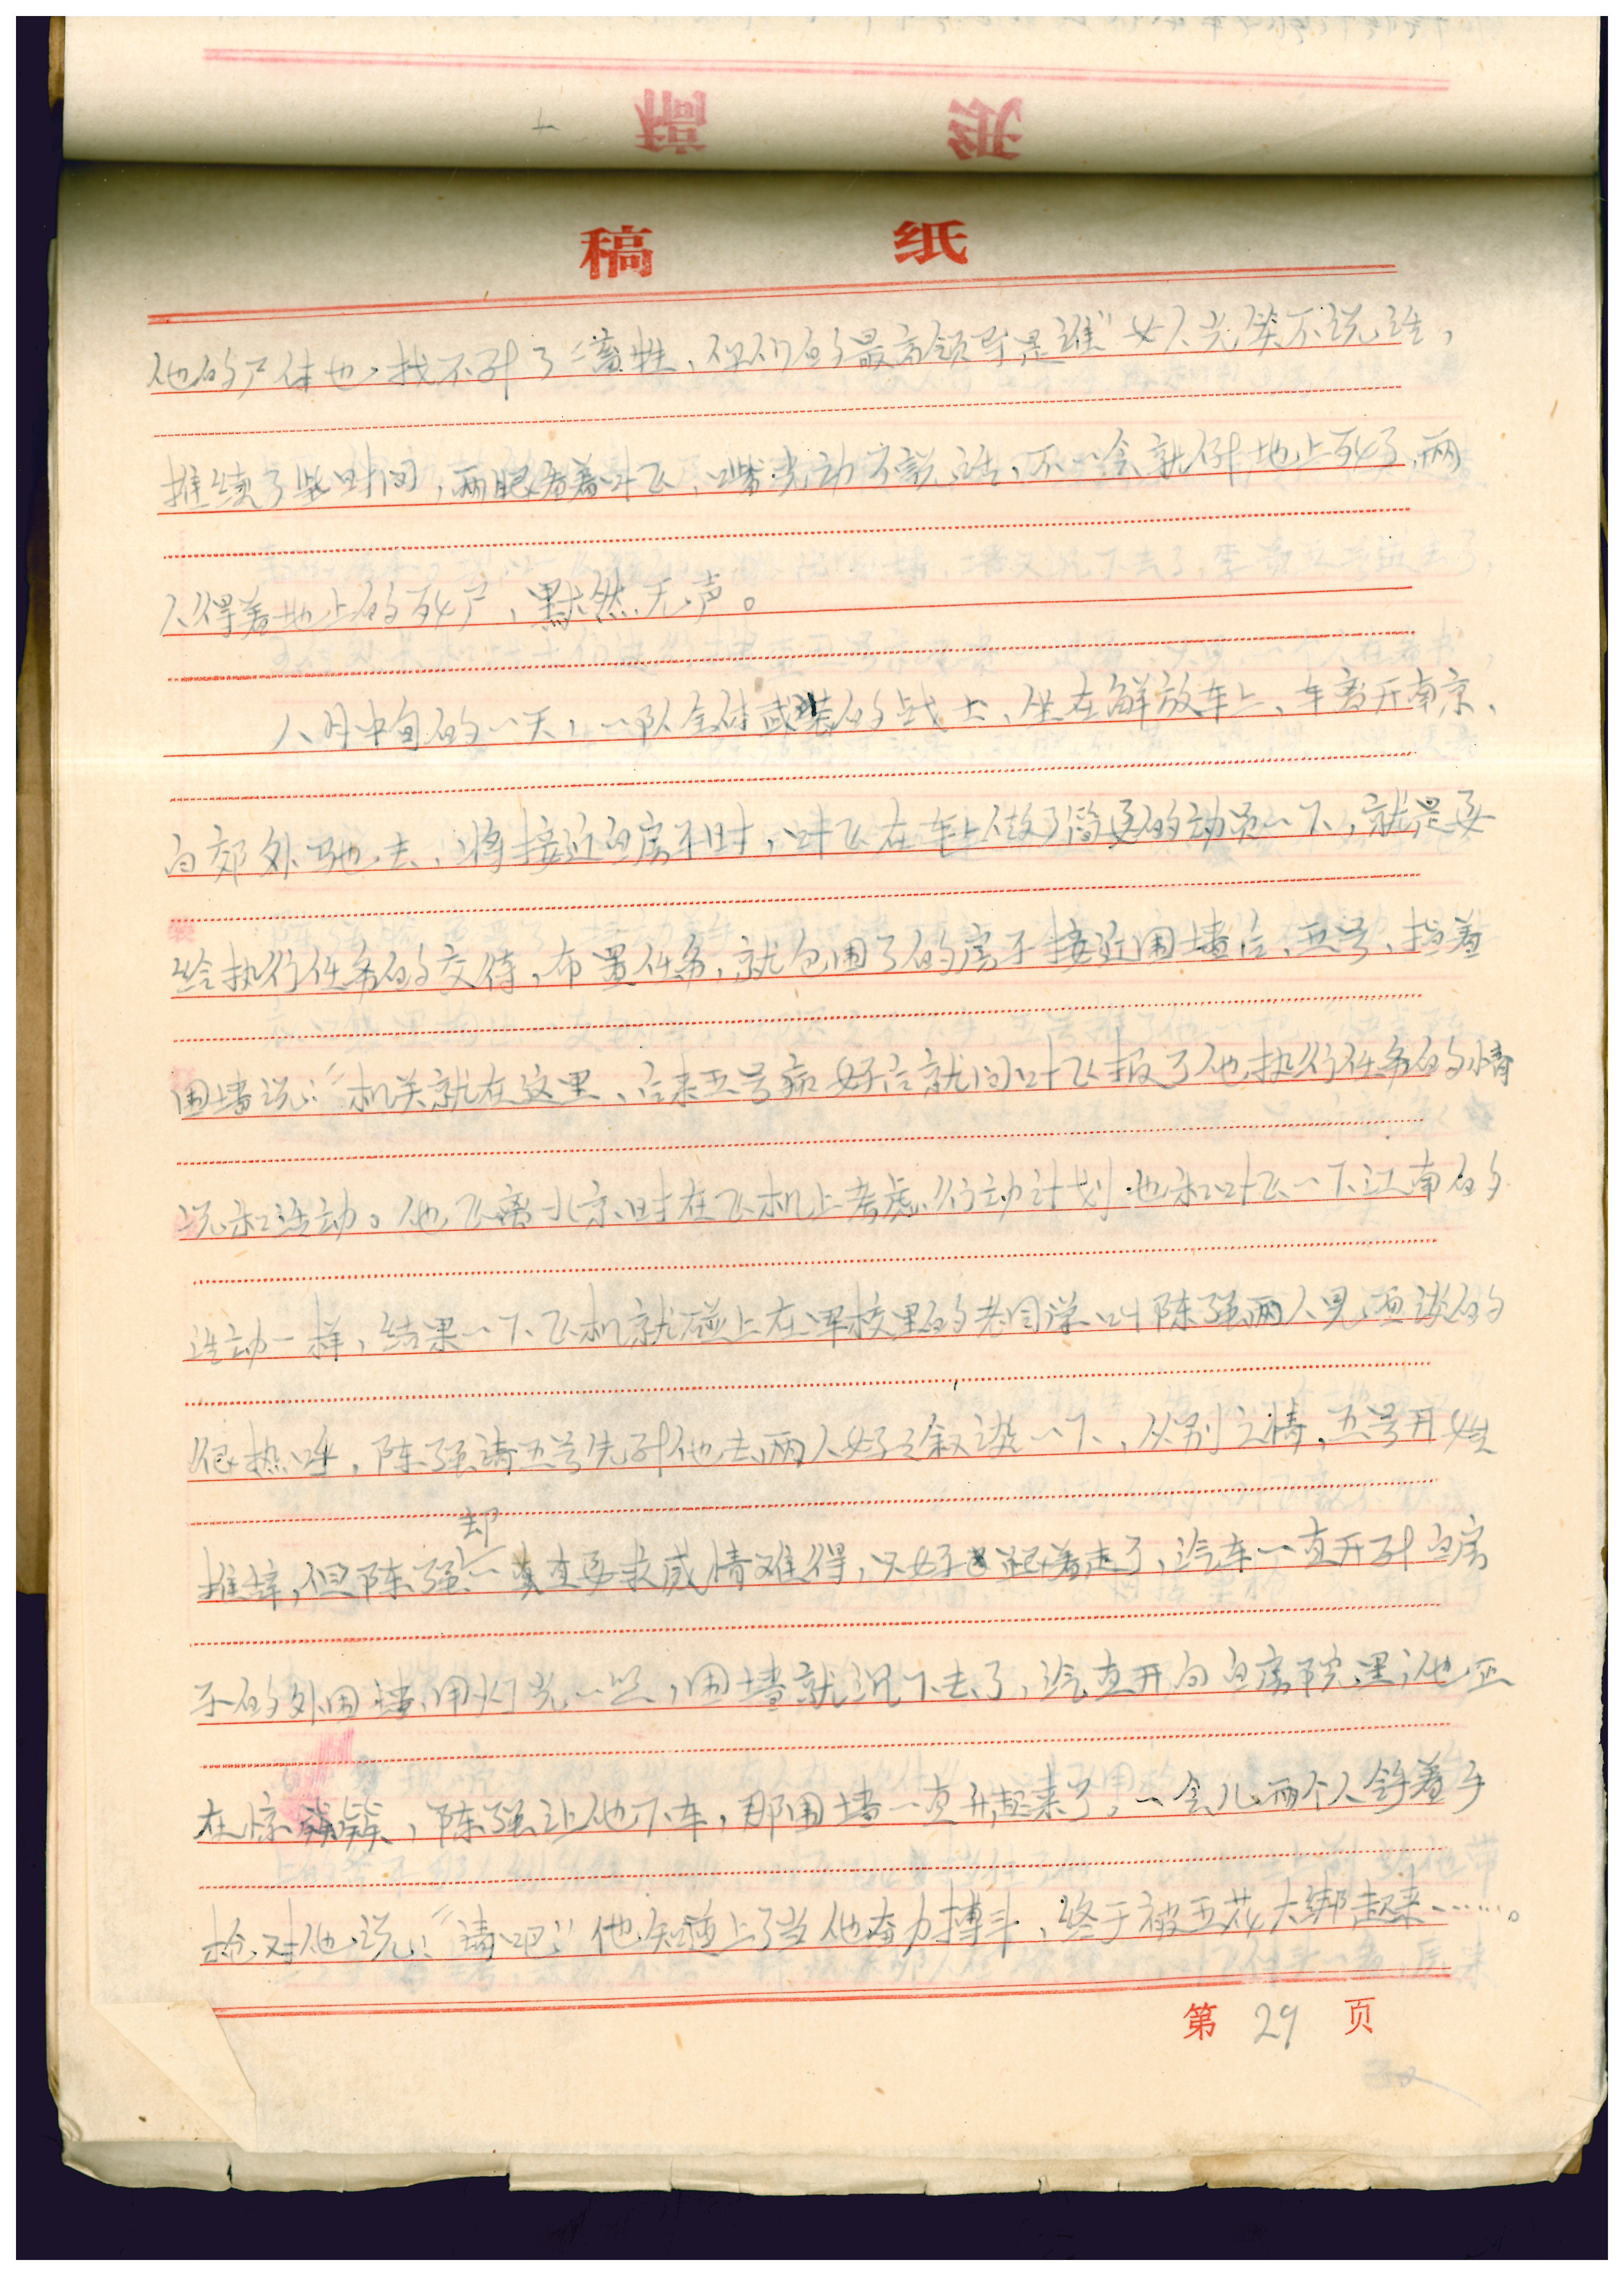 稿 纸
他的尸体也找不到了“畜牲,你们的最高领导是谁”女人光笑不说话,
推续了些时间,两眼看着叶飞,嘴光动不说话,不一会就倒地上死了,两
人得着地上的死尸,默然无声。
八月中旬的一天,一队全付武装的战士,坐在解放车上,车离开南京、
向郊外驰去,将接近白房子时,叶飞在车上做了简要的动员一下,就是要
给执行任务的交待,布置任务,就包围了白房子接近围墙后,五号,指着
围墙说:“机关就在这里,后来五号病好后就向叶飞报了他执行任务的情
况和活动。他飞离北京时在飞机上考虑行动计划也和叶飞一下江南的
活动一样,结果一下飞机就碰上在军校里的老同学叫陈强两人见面谈的
很热呼,陈强请五号先到他去两人好好叙谈一下,久别之情,五号开始
推辞,但陈强却一直要求感情难得,只好跟着走了,汽车一直开到白房
子的外围墙,用灯光一照,围墙就沉下去了,汽车开向白房院里,他正
在惊疑,陈强让他下车,那围墙一直升起来了。一会儿两个人举着手
枪对他说:“请吧”他知道上了当他奋力搏斗,终于被五花大绑起来……。
第 29 页